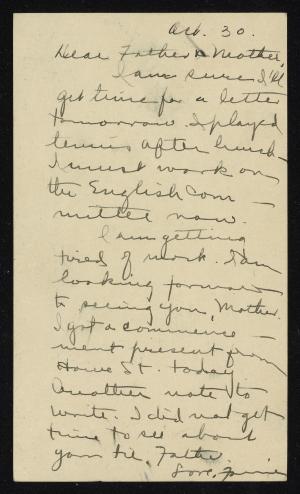 30.
Dear Father & Mother,
I am sure I'll
get time for a letter
tomorrow. I played
tennis after lunch.
I must work on
the English Com -
mittee now.
I am getting
tired of work. I am
looking forward
to seeing you, Mother.
I got a commence -
ment present from
Howe St. today
Another note to
write. I did not get
time to see about
your tie, Father
Love,